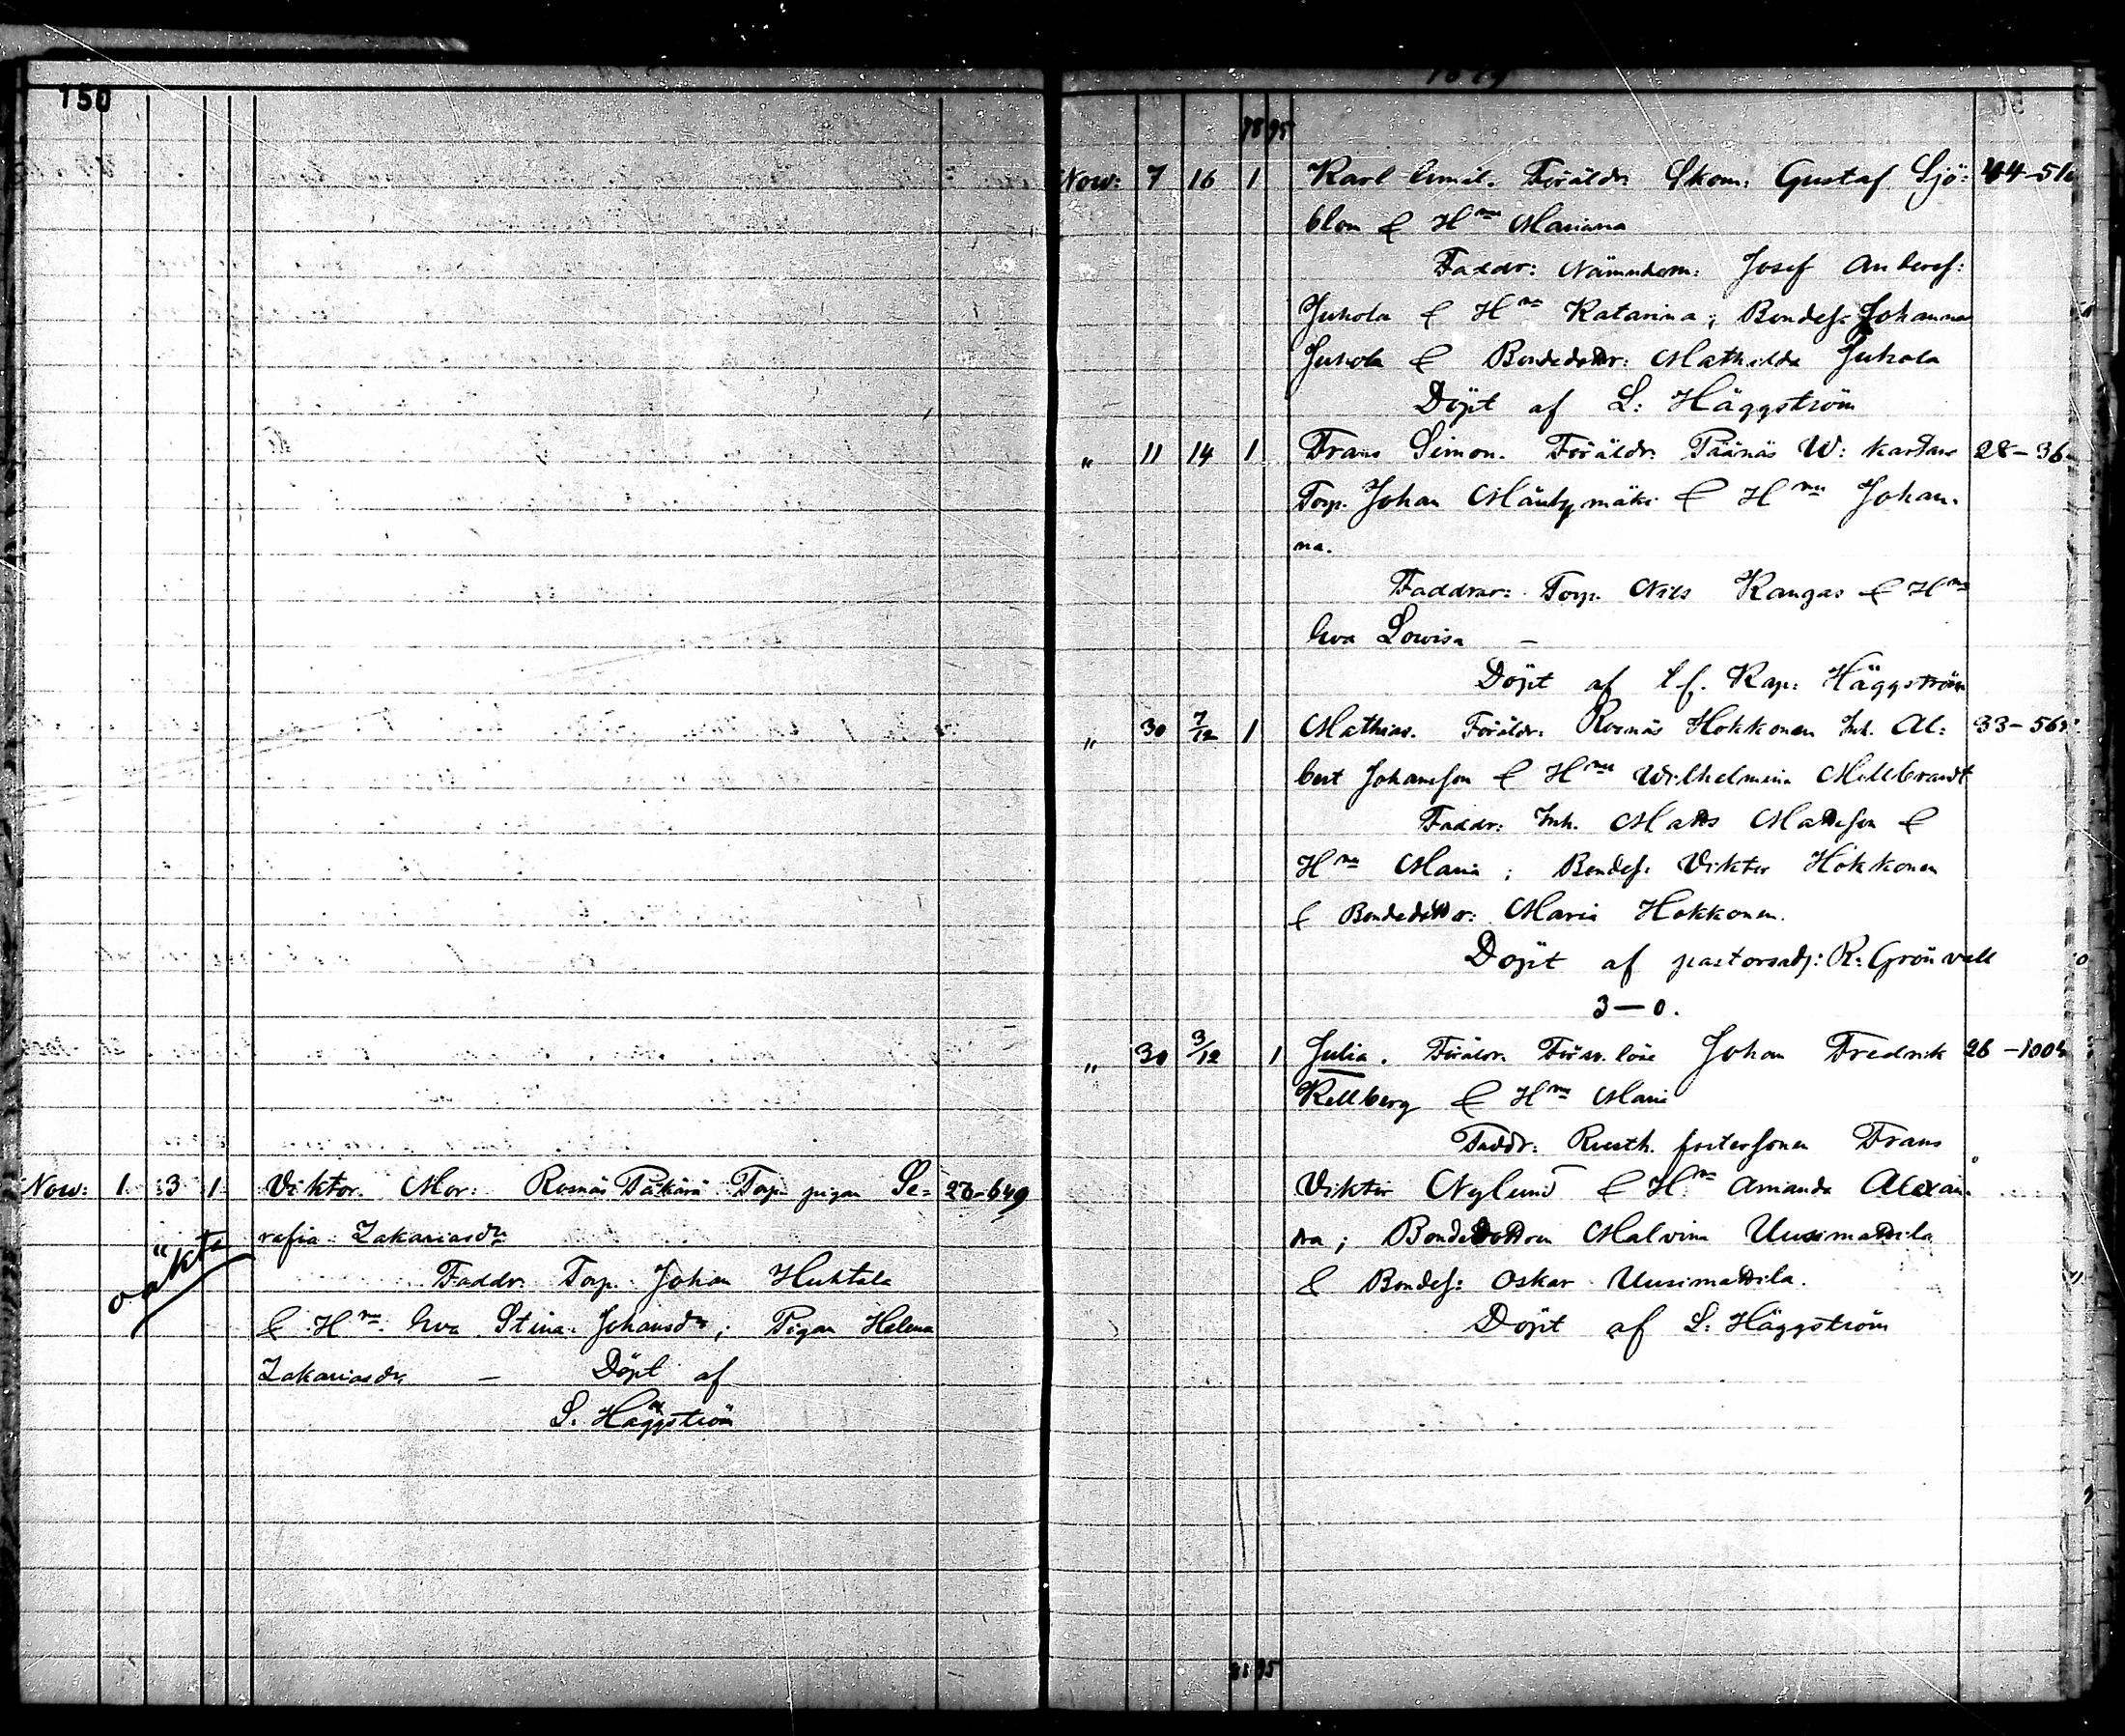 150
Nov: 1 3 1 Viktor. Mor: Rosnäs Päkärä Torp. pigan Se= 26-649
oäkta
rafia Zakariasdr
Faddr. Torp. Johan Huhtala
& Hru Eva Stina Johansdr; Pigan Helena
Zakariasdr – Döpt af
L. Häggström
1879
78 95
Nov: 7 16 1 Karl Emil. Föräldr: Skom: Gustaf Sjö: 44-516
blom & Hru Mariana
Faddr: Nämndem: Josef Andersf:
Juhola & Hru Katarina; Bondes. Johannes
Juhola & Bondedottr: Mathilda Juhola
Döpt af L: Häggström
" 11 14 1 Frans Simon. Föräldr: Päänäs W: 28-36
Torp. Johan Mäntymäki & Hru Johan-
na.
Faddrar: Torp. Nils Kangas & Hru
Eva Lovisa –
Döpt af Kap: Häggström
" 30 7/12 1 Mathias. Föräldr: Rosnäs Hokkonen Inh. Al: 33-565
bert Johansson & Hru Wilhelmina Millbrandt
Faddr: Inh. Matts Mattsson &
Hru Maria; Bondes. Viktor Hokkonen
& Bondedottr: Maria Hokkonen.
Döpt af pastorsadj: R: Grönvall
3–0.
" 30 3/12 1 Julia. Föräldr. Försv. löse Johan Fredrik 26-1004
Kellberg & Hru Maria
Faddr: Rusth. Frans
Viktor Nylund & Hru Amanda Alexan
dra; Bondedottren Malvina Uusimattila
& Bondes: Oskar Uusimattila.
Döpt af L: Häggström
81 95